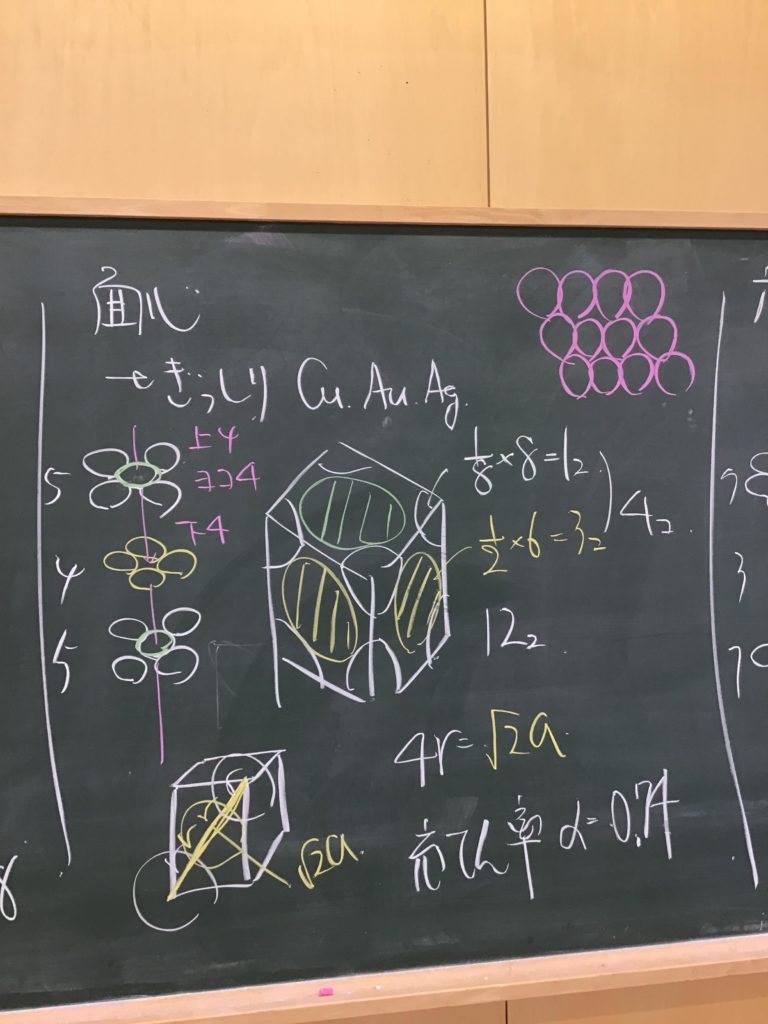 面心
→ぎっしり Cu. Au. Ag.
5
上4
ヨコ4
下4
4
5
1/8×8=1コ
1/2×6=3コ
4コ
12コ
4r=√2a
√2a
充てん率 α=0.74
3